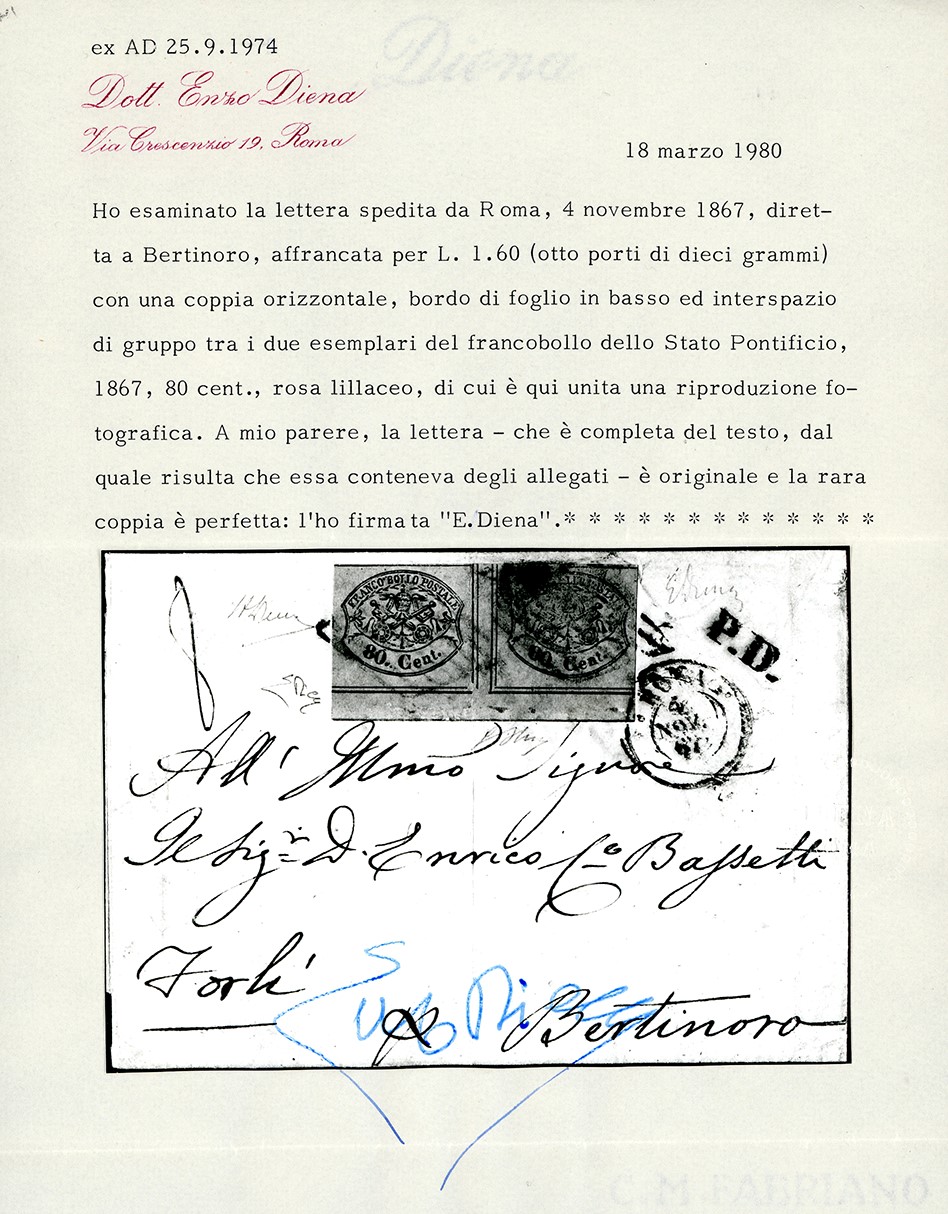 ex AD 25.9.1974
Diena
Dott. Enzo Diena
Via Crescenzio 19. Roma
18 marzo 1980
Ho esaminato la lettera spedita da Roma, 4 novembre 1867, diret-
ta a Bertinoro, affrancata per L. 1.60 (otto porti di dieci grammi)
con una coppia orizzontale, bordo di foglio in basso ed interspazio
di gruppo tra i due esemplari del francobollo dello Stato Pontificio,
1867, 80 cent., rosa lillaceo, di cui è qui unita una riproduzione fo-
tografica. A mio parere, la lettera - che è completa del testo, dal
quale risulta che essa conteneva degli allegati - è originale e la rara
coppia è perfetta: l'ho firmata "E.Diena".* * * * * * * * * * * * *
FRANCO BOLLO POSTALE
80. Cent.
FRANCO BOLLO POSTALE
80. Cent.
EDiena
P.D.
ROMA
4
NOV
67
8
All' Illmo Signore
Il Sigr. D. Enrico Co Bassetti
Forlì
p Bertinoro
C.M.FABRIANO